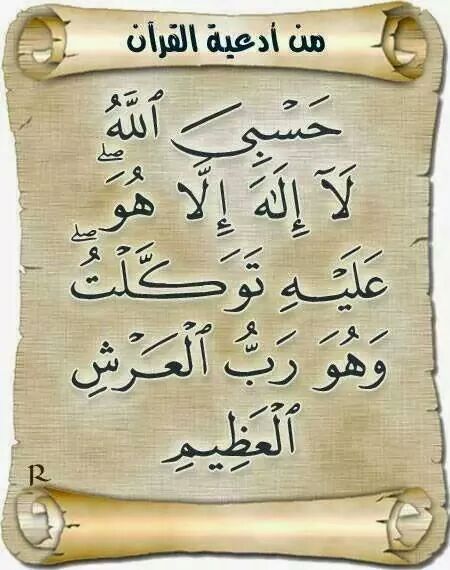 من أدعية القرآن
حَسْبِيَ ٱللَّهُ
لَآ إِلَٰهَ إِلَّا هُوَۖ
عَلَيْهِ تَوَكَّلْتُۖ
وَهُوَ رَبُّ ٱلْعَرْشِ
ٱلْعَظِيمِ
R